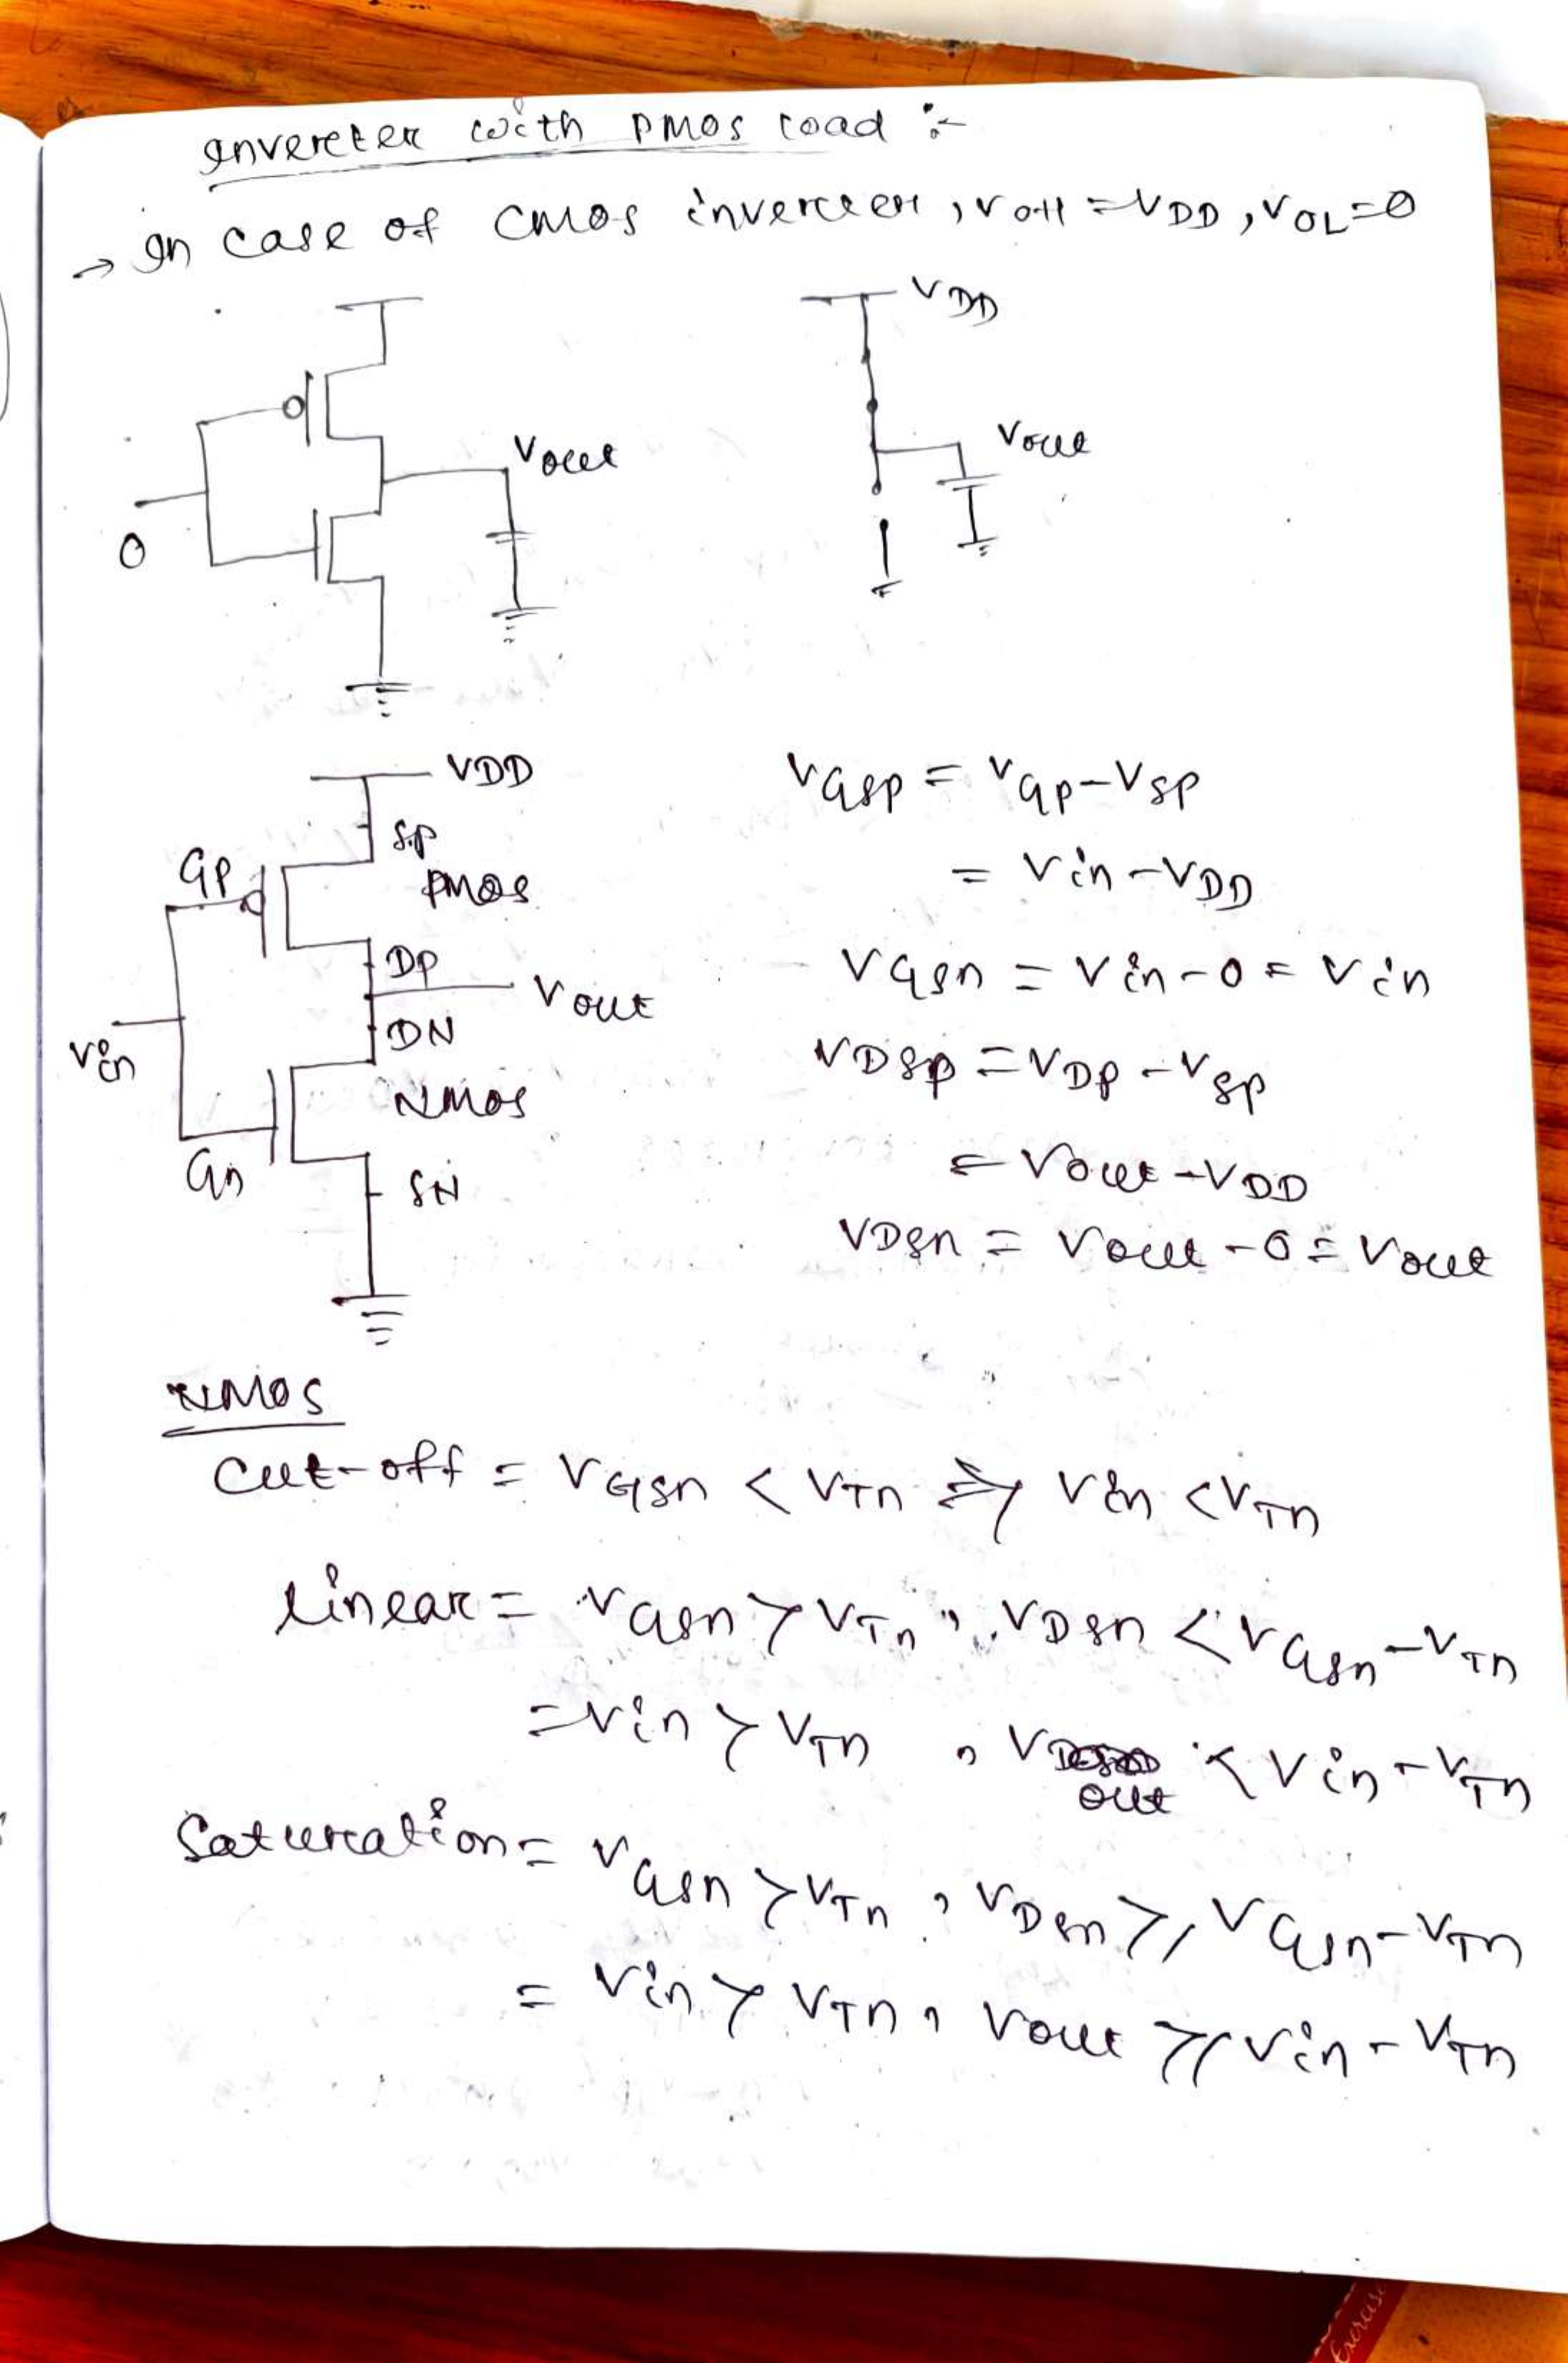 Inverter with PMOS load :-
→ In case of CMOS inverter, VOH = VDD, VOL = 0
VDD
Vout
Vout
0
VDD
SP
GP
PMOS
DP
Vout
DN
Vin
NMOS
Gn
SN
VGSP = VGP - VSP
= Vin - VDD
VGSn = Vin - 0 = Vin
VDSP = VDP - VSP
= Vout - VDD
VDSn = Vout - 0 = Vout
NMOS
Cut-off = VGSn < VTn ⇒ Vin < VTn
Linear = VGSn > VTn, VDSn < VGSn - VTn
= Vin > VTn, Vout < Vin - VTn
Saturation = VGSn > VTn, VDSn ≥ VGSn - VTn
= Vin > VTn, Vout ≥ Vin - VTn
Exercise